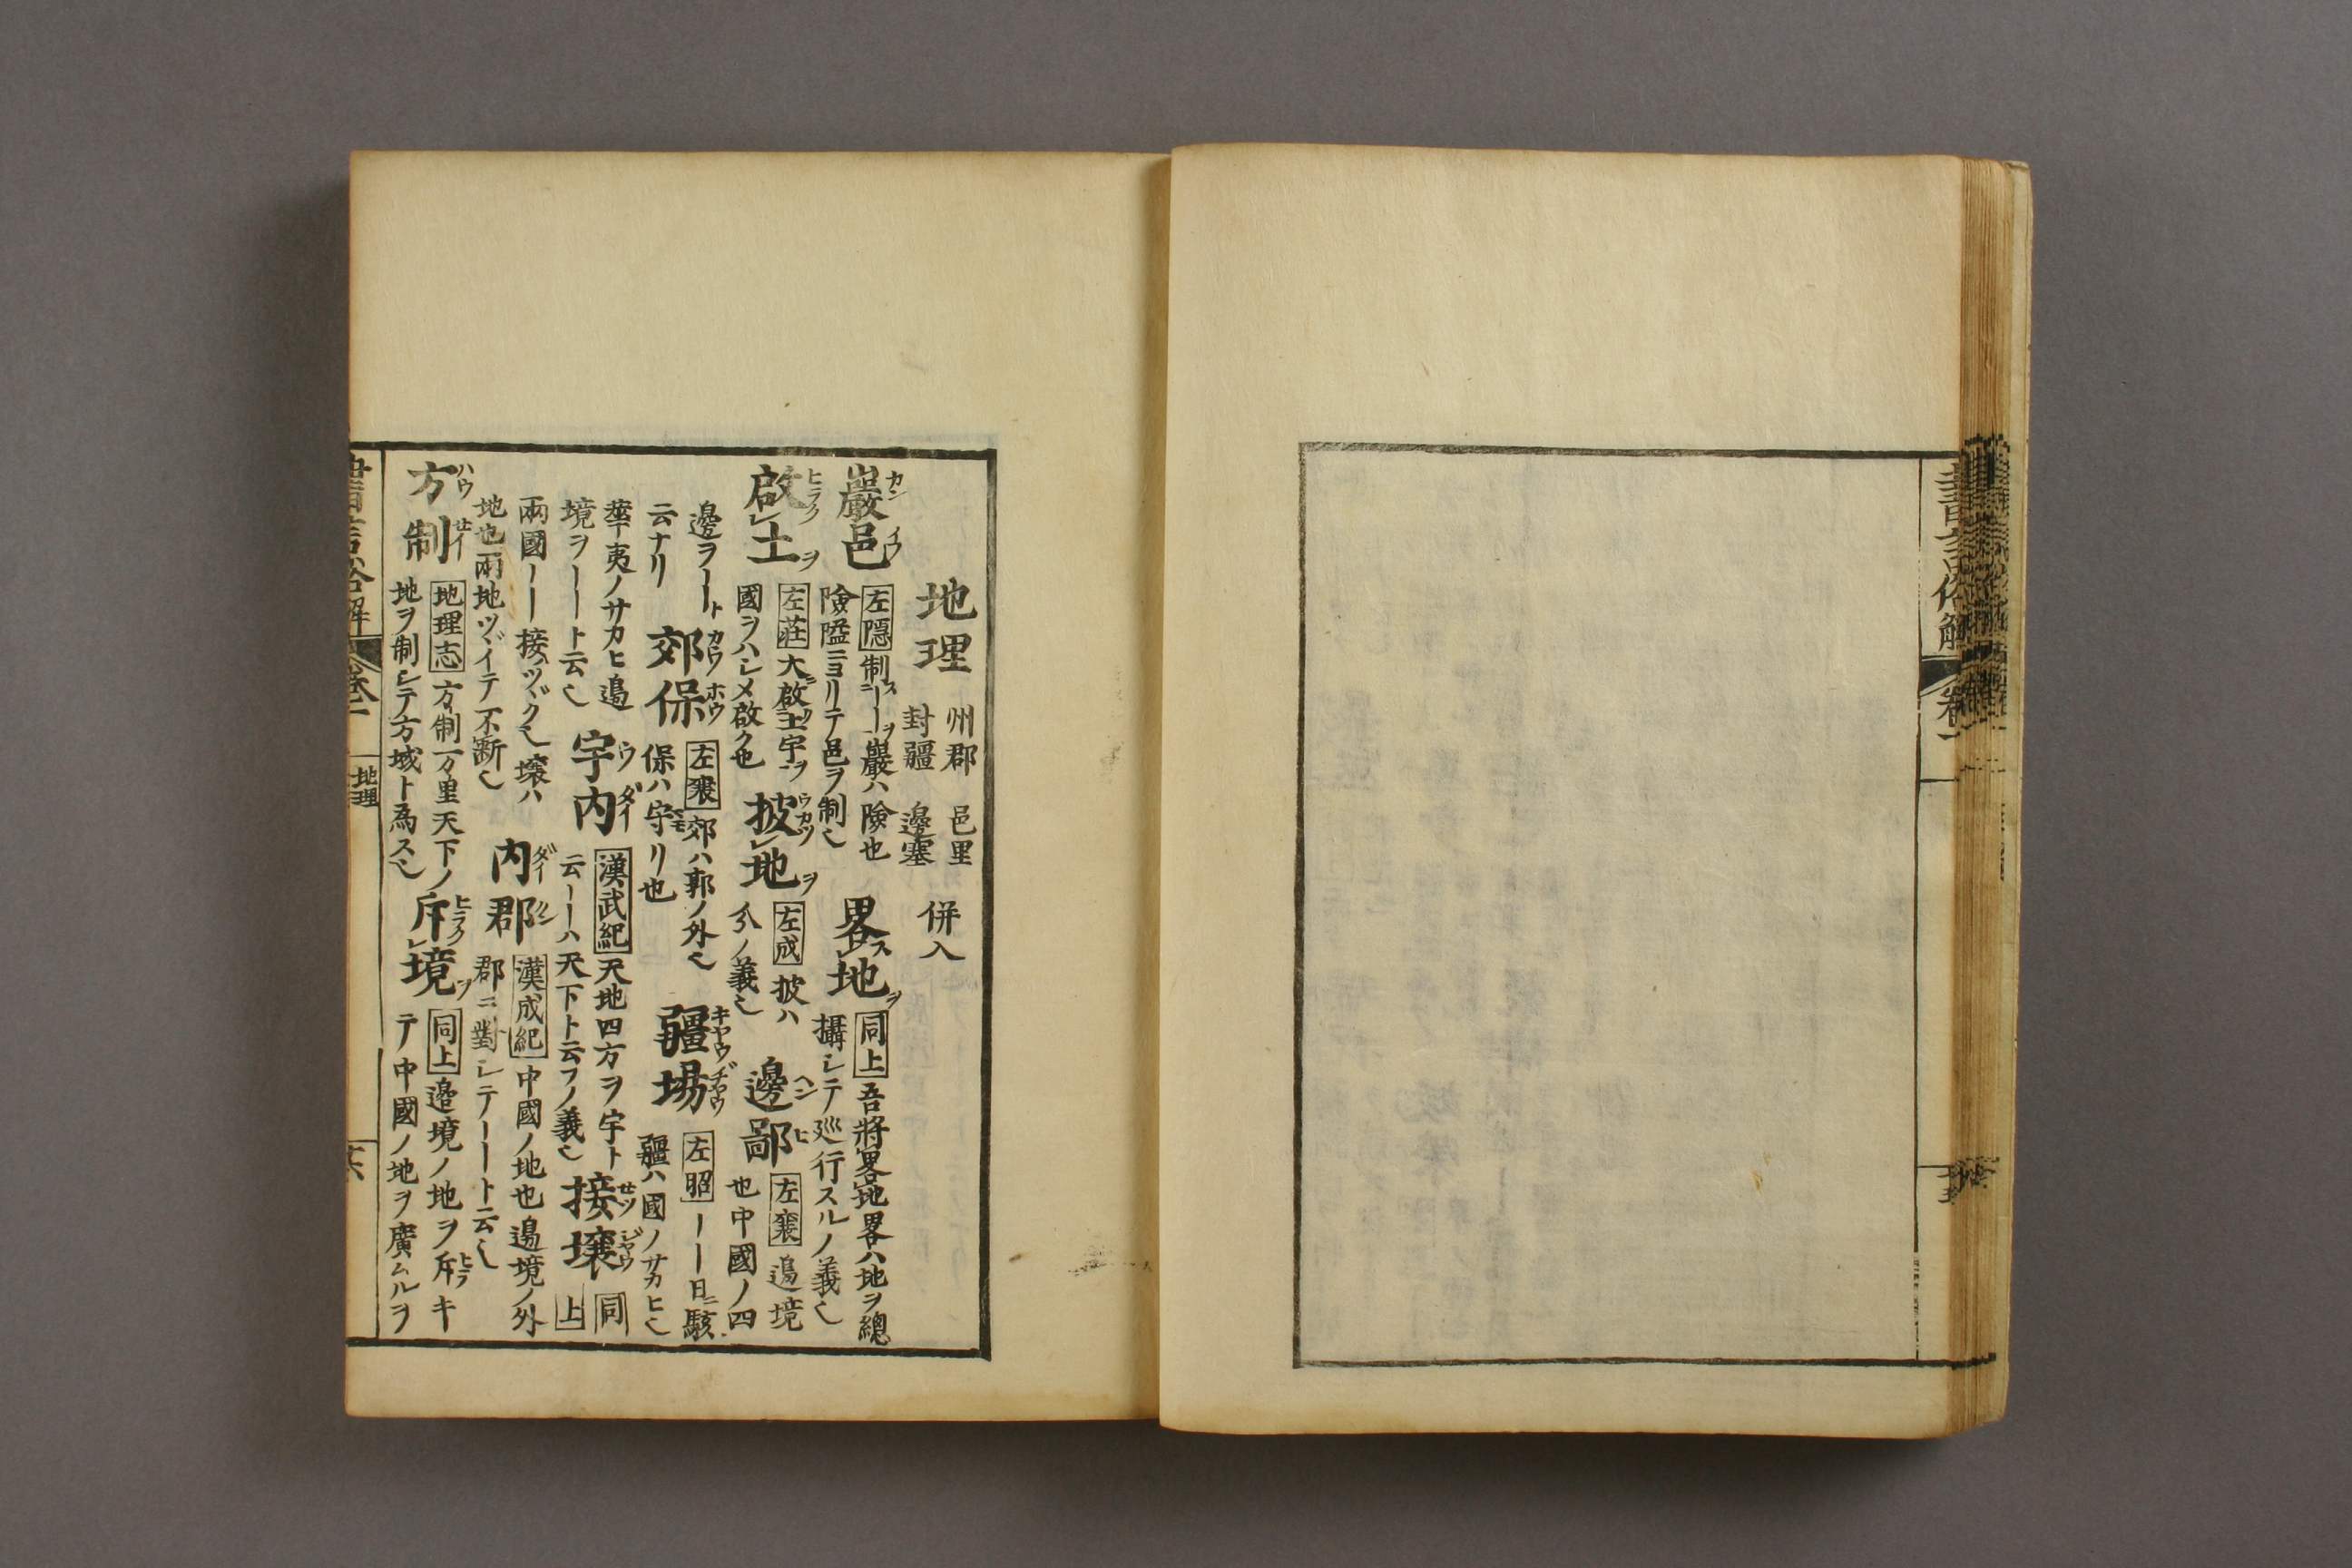 地理 州郡 邑里 併入
封疆 邊塞
巖邑 左隱 制ス巖ハ險也
險隘ニヨリテ邑ヲ制
略地 同上 吾將畧地畧ハ地ヲ總
攝シテ巡行スルノ義
啟土 左莊 大啟土宇ヲ
國ヲハシメ啟ク也
披地 左成 披ハ
分ノ義
邊鄙 左襄 邊境
也中國ノ四
邊ヲーート
云ナリ
郊保 左襄 郊ハ郭ノ外
保ハ守リ也
疆場 左昭 ーー日駭
疆ハ國ノサカヒ
華夷ノサカヒ邊
境ヲーート云
宇内 漢武紀 天地四方ヲ宇ト
云ーーハ天下ト云フノ義
接壤 同上
兩國ーー接ツヾク壤ハ
地也兩地ツヾイテ不斷
内郡 漢成紀 中國ノ地也邊境ノ外
郡ニ對シテーート云
方制 地理志 方制万里天下ノ
地ヲ制シテ方域ト為ス
斥境 同上 邊境ノ地ヲ斥キ
テ中國ノ地ヲ廣ムルヲ
地理